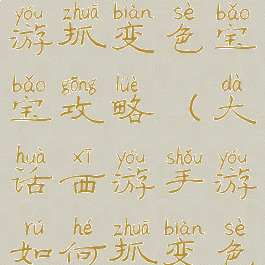 yóu zhuā biàn sè bǎo
游抓变色宝
bǎo gōng lüè dà
宝攻略（大
huà xī yóu shǒu yóu
话西游手游
rú hé zhuā biàn sè
如何抓变色